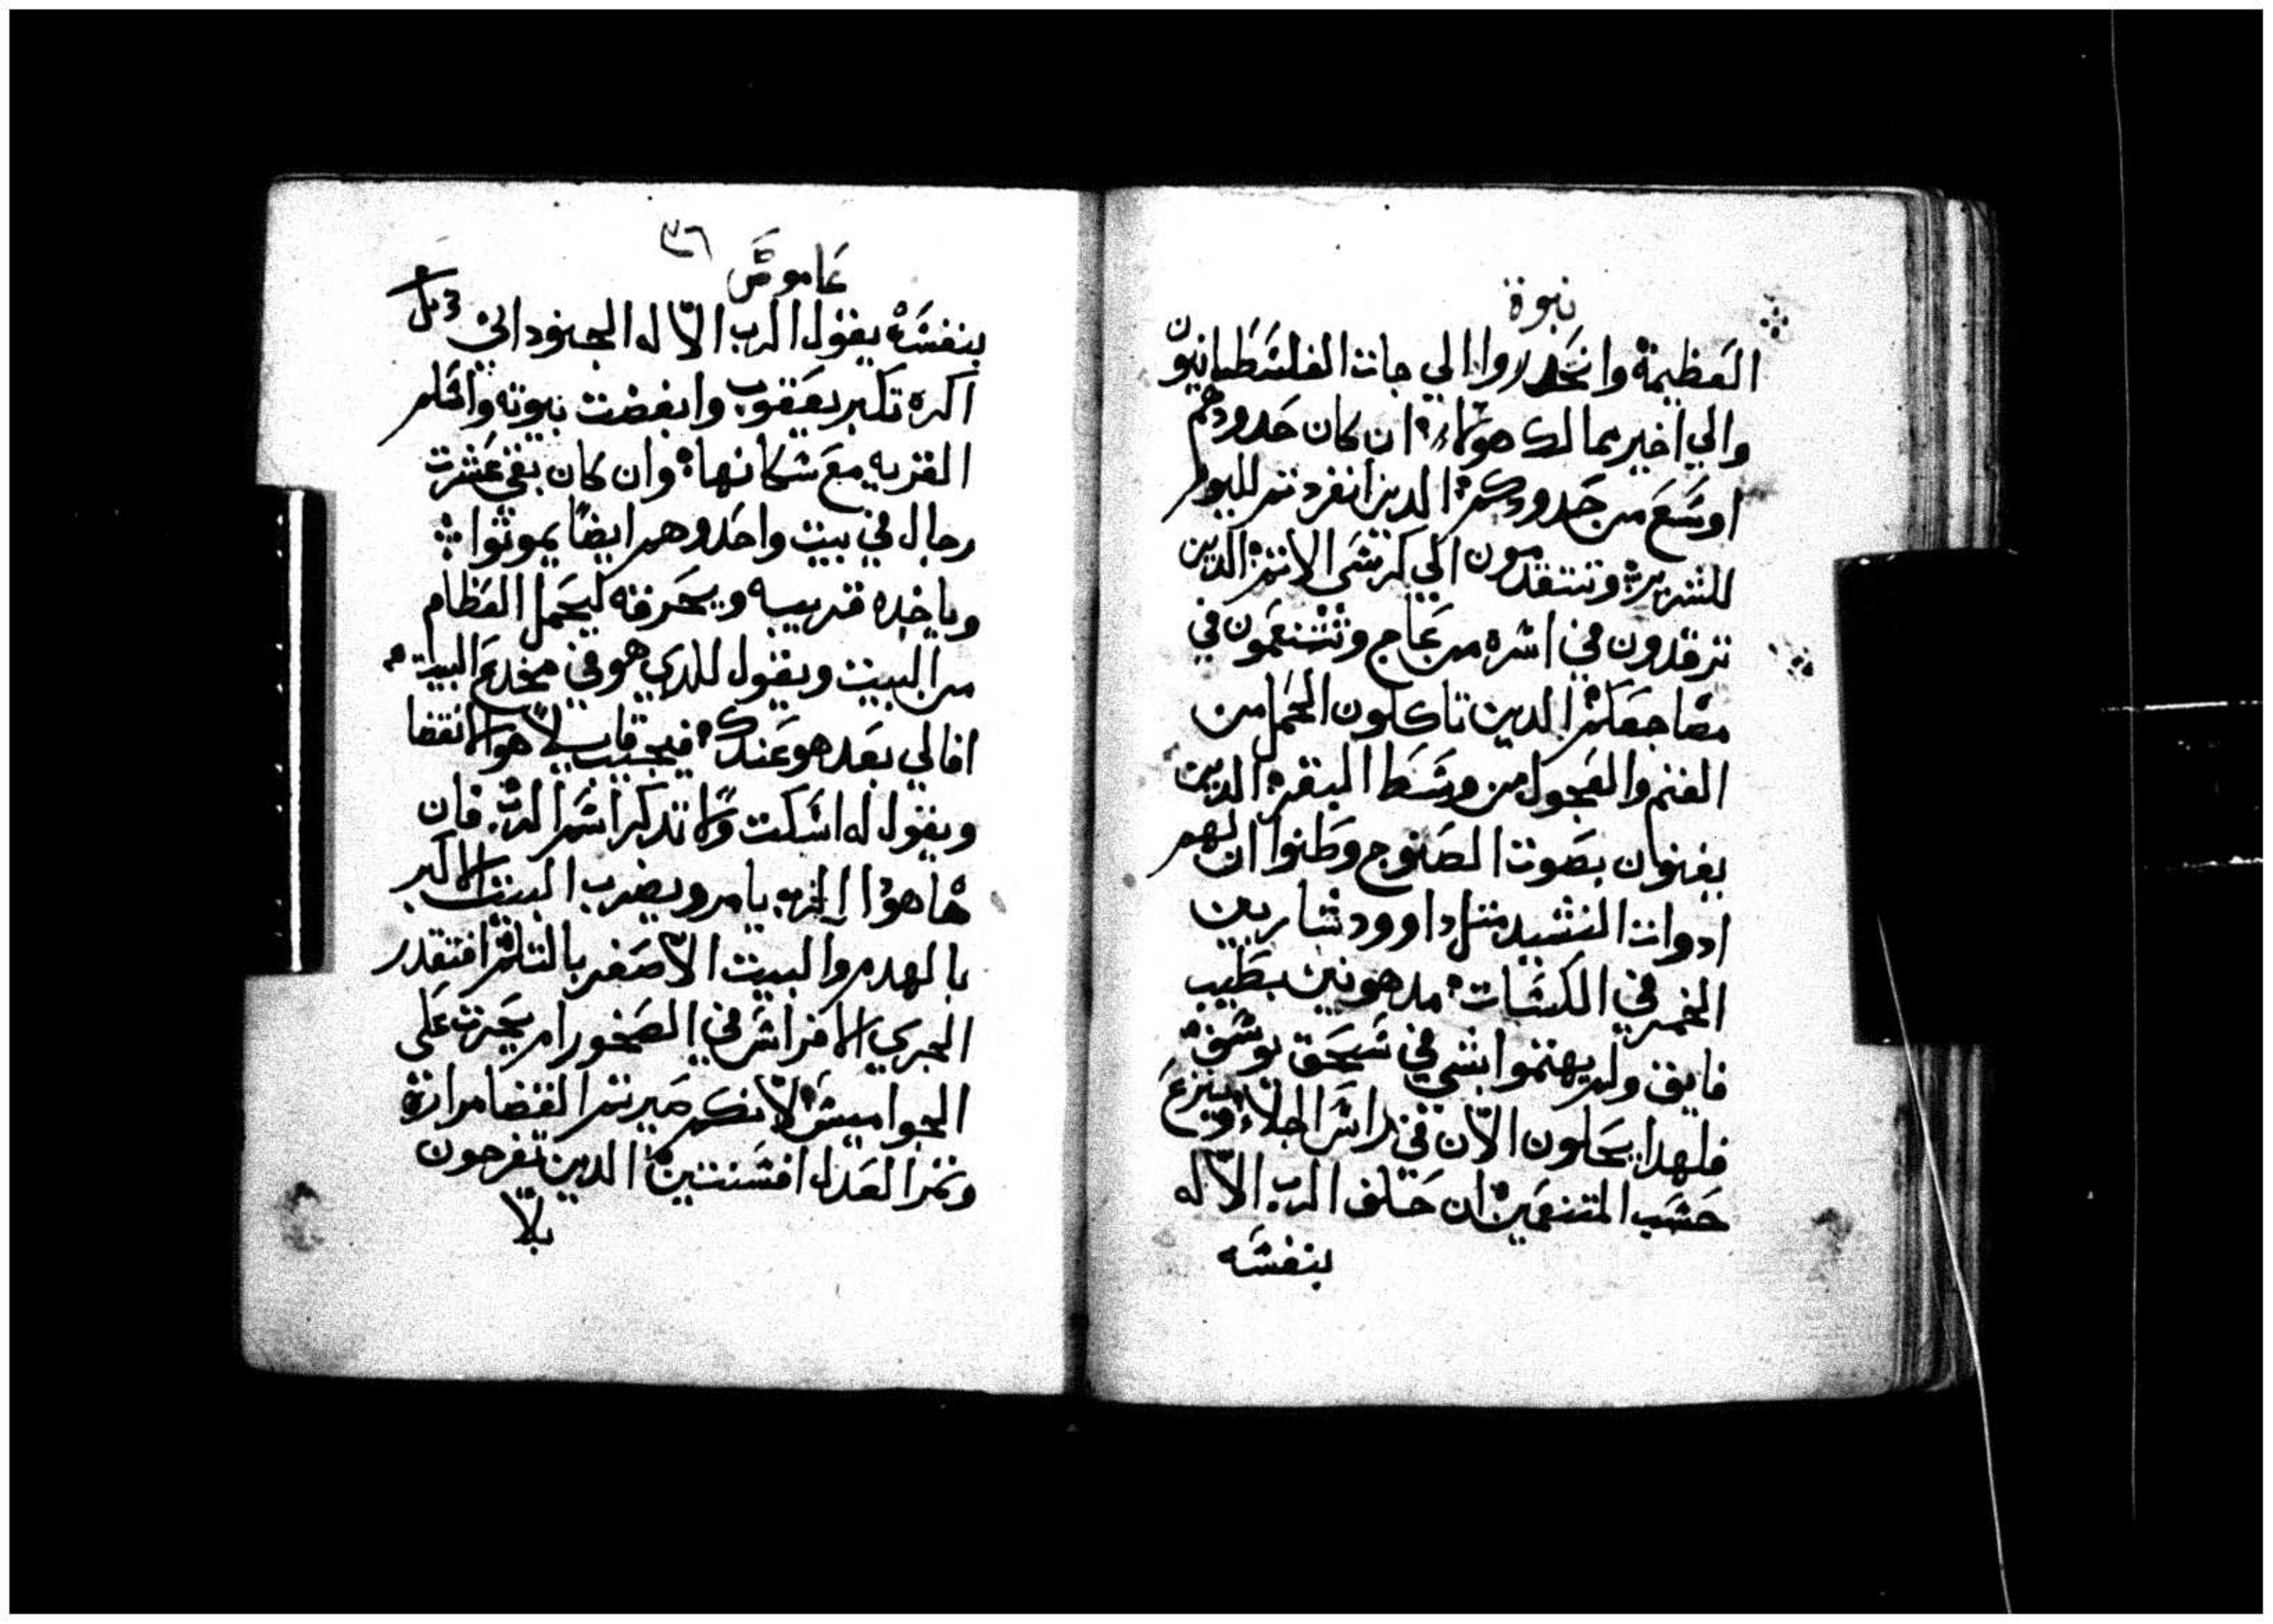 نبوة
العظيمة وانحدروا الي جات الفلسطانيون
والي اخير ممالك هولاء ان كان حدودهم
اوسع من حدودكم الدين انفردتم لليوم
للشرير وتتقدمون الي كرسي الاثم الدين
ترقدون في اسره من عاج وتتنعمون في
مضاجعكم الدين تاكلون الحمل من
الغنم والعجول من وسط البقر الدين
يغنوان بصوت الصنوج وظنوا ان لهم
ادوات النشيد متل داوود شاربين
الخمر في الكسات مدهونين بطيب
فايق ولم يهتموا بشي في سحق يوسف
فلهدا يجلون الان في راس الجلاء وينزع
حسب المتنعمين ان حلف الرب الاله
بنفسه
عاموس
٣٦
بنفسه يقول الرب الاله الجنود اني
اكره تكبر يعقوب وابغضت بيوته واسلم
القريه مع سكانها وان كان بقي عشرت
رجال في بيت واحد وهم ايضا يموتوا
وياخده قريبه ويحرقه ليحمل العظام
من البيت ويقول للدي هو في مخدع البيت
افالي بعد هو عندك فيجيب قايلا هوالانقضا
ويقول له اسكت ولا تدكر اسم الرب فان
هاهودا الرب يامر ويضرب البيت الاكبر
بالهدم والبيت الاصغر بالتلم افتقدر
الجري الافراس في الصخور ام يحرت علي
الجواميس لانكم صيرتم القضا مرارة
وتمر العدل افسنتين الدين تفرحون
بلا